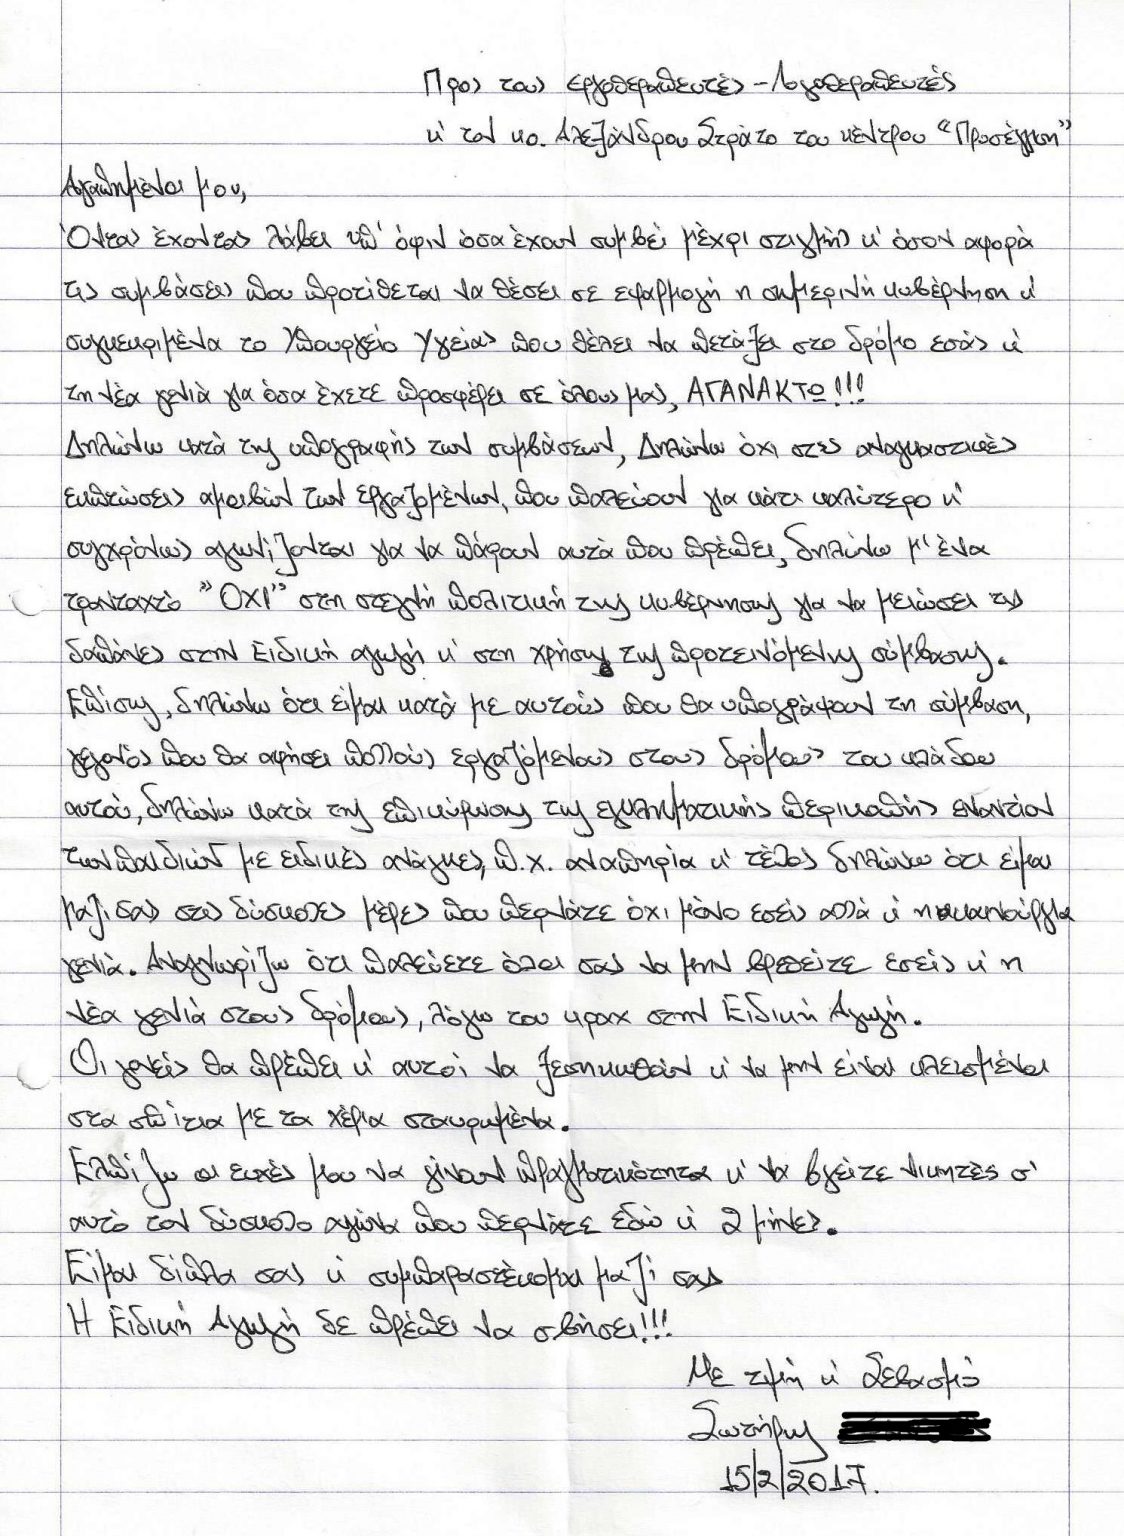 Προς τους εργοθεραπευτές - Λογοθεραπευτές
κ' τον κο. Αλεξάνδρου Στράτο του κέντρου "Προσέγγιση"
Αγαπημένοι μου,
Όντας έχοντας λάβει υπ' όψιν όσα έχουν συμβεί μέχρι στιγμής κ' όσον αφορά
τις συμβάσεις που προτίθεται να θέσει σε εφαρμογή η σημερινή κυβέρνηση κ'
συγκεκριμένα το Υπουργείο Υγείας που θέλει να πετάξει στο δρόμο εσάς κ'
τη νέα γενιά για όσα έχετε προσφέρει σε όλους μας, ΑΓΑΝΑΚΤΩ!!!
Δηλώνω κατά της υπογραφής των συμβάσεων, Δηλώνω όχι στις αναγκαστικές
εκπτώσεις αμοιβών των εργαζομένων, που παλεύουν για κάτι καλύτερο κ'
συγχρόνως αγωνίζονται για να πάρουν αυτά που πρέπει, δηλώνω μ' ένα
τρανταχτό "ΟΧΙ" στη στεγνή πολιτική της κυβέρνησης για να μειώσει τις
δαπάνες στην Ειδική αγωγή κ' στη χρήση της προτεινόμενης σύμβασης.
Επίσης, δηλώνω ότι είμαι κατά με αυτούς που θα υπογράψουν τη σύμβαση,
γεγονός που θα αφήσει πολλούς εργαζόμενους στους δρόμους του κλάδου
αυτού, δηλώνω κατά της επικύρωσης της εγκληματικής περικοπής εναντίον
των παιδιών με ειδικές ανάγκες, π.χ. αναπηρία κ' τέλος δηλώνω ότι είμαι
μαζί σας στις δύσκολες μέρες που περνάτε όχι μόνο εσείς αλλά κ' η καινούργια
γενιά. Αναγνωρίζω ότι παλεύετε όλοι σας να μην βρεθείτε εσείς κ' η
νέα γενιά στους δρόμους, λόγω του κραχ στην Ειδική Αγωγή.
Οι γονείς θα πρέπει κ' αυτοί να ξεσηκωθούν κ' να μην είναι κλεισμένοι
στα σπίτια με τα χέρια σταυρωμένα.
Ελπίζω οι ευχές μου να γίνουν πραγματικότητα κ' να βγείτε νικητές σ'
αυτό τον δύσκολο αγώνα που περνάτε εδώ κ' 2 μήνες.
Είμαι δίπλα σας κ' συμπαραστέκομαι μαζί σας
Η Ειδική Αγωγή δε πρέπει να σβήσει!!!
Με τιμή κ' Σεβασμό
Σωτήρης
15/2/2017.